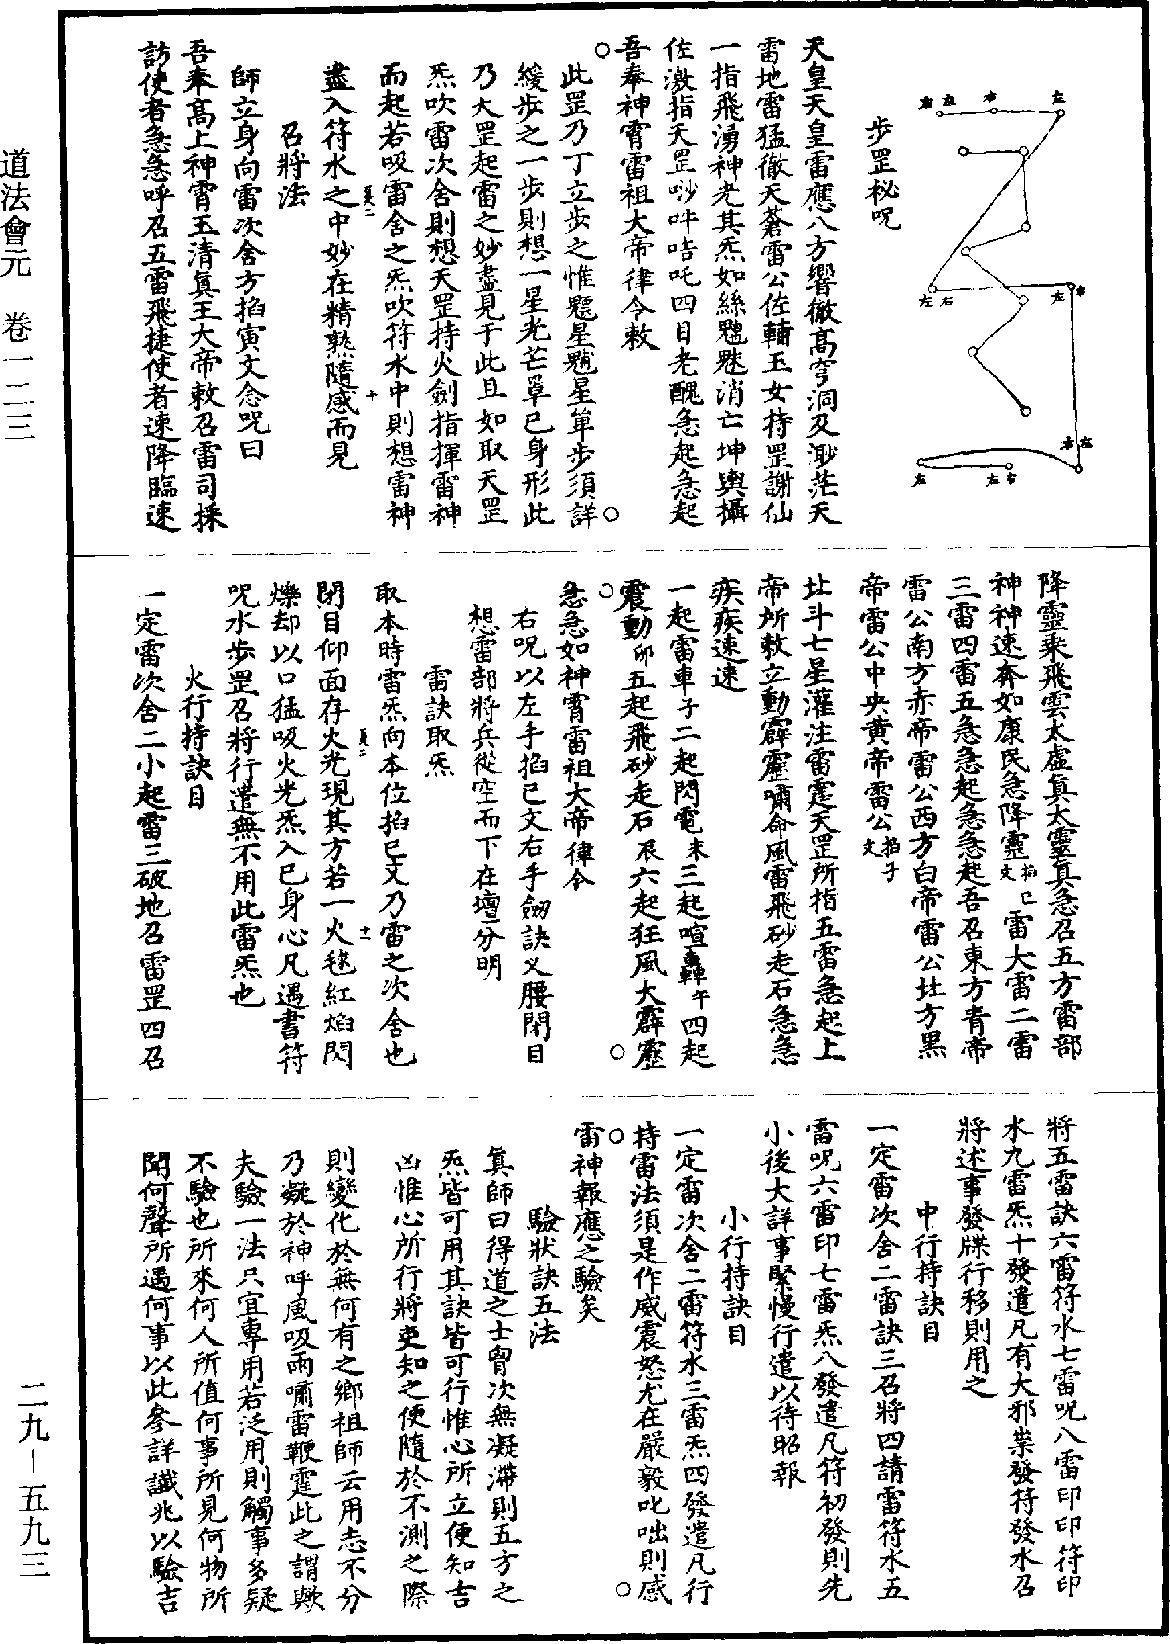 道法會元　卷一二三
二九—五九三
左 右 左 右
左 右 左 右
右 左
左 左 右
步罡秘呪
天皇天皇雷應八方響徹高穹洞及渺茫天
雷地雷猛徹天蒼雷公佐輔玉女持罡謝仙
一指飛湧神光其炁如絲魑魅消亡坤輿攝
佐激指天罡吵吽咭吒四目老醜急起急起
吾奉神霄雷祖大帝律令敕
○此罡乃丁立步之惟魒星魓星單步須詳○
緩步之一步則想一星光芒罩已身形此
乃大罡起雷之妙盡見于此且如取天罡
炁吹雷次舍則想天罡持火劍指揮雷神
而起若吸雷舍之炁吹符水中則想雷神
盡入符水之中妙在精熟隨感而見
召將法
師立身向雷次舍方掐寅文念呪曰
吾奉高上神霄玉清真王大帝敕召雷司採
訪使者急急呼召五雷飛捷使者速降臨速
降靈乘飛雲太虛真太靈真急召五方雷部
神神速奔如康民急降靈掐巳文雷大雷二雷
三雷四雷五急急起急急起吾召東方青帝
雷公南方赤帝雷公西方白帝雷公北方黑
帝雷公中央黃帝雷公掐子文
北斗七星灌注雷霆天罡所指五雷急起上
帝所敕立動霹靂嘯命風雷飛砂走石急急
疾疾速速
一起雷車子二起閃電未三起喧轟午四起
震動卯五起飛砂走石辰六起狂風大霹靂
○急急如神霄雷祖大帝律令○
右呪以左手掐巳文右手劒訣乂腰閉目
想雷部將兵從空而下在壇分明
雷訣取炁
取本時雷炁向本位掐巳文乃雷之次舍也
閉目仰面存火光現其方若一火毬紅焰閃
爍却以口猛吸火光炁入已身心凡遇書符
呪水步罡召將行遣無不用此雷炁也
大行持訣目
一定雷次舍二小起雷三破地召雷罡四召
將五雷訣六雷符水七雷呪八雷印印符印
水九雷炁十發遣凡有大邪祟發符發水召
將述事發牒行移則用之
中行持訣目
一定雷次舍二雷訣三召將四請雷符水五
雷呪六雷印七雷炁八發遣凡符初發則先
小後大詳事緊慢行遣以待昭報
小行持訣目
一定雷次舍二雷符水三雷炁四發遣凡行
持雷法須是作威震怒尤在嚴毅叱咄則感
○雷神報應之驗矣○
驗狀訣五法
真師曰得道之士胷次無凝滯則五方之
炁皆可用其訣皆可行惟心所立便知吉
凶惟心所行將吏知之便隨於不測之際
則變化於無何有之鄉祖師云用志不分
乃凝於神呼風吸雨嘯雷鞭霆此之謂歟
夫驗一法只宜專用若泛用則觸事多疑
不驗也所來何人所值何事所見何物所
聞何聲所遇何事以此參詳讖兆以驗吉